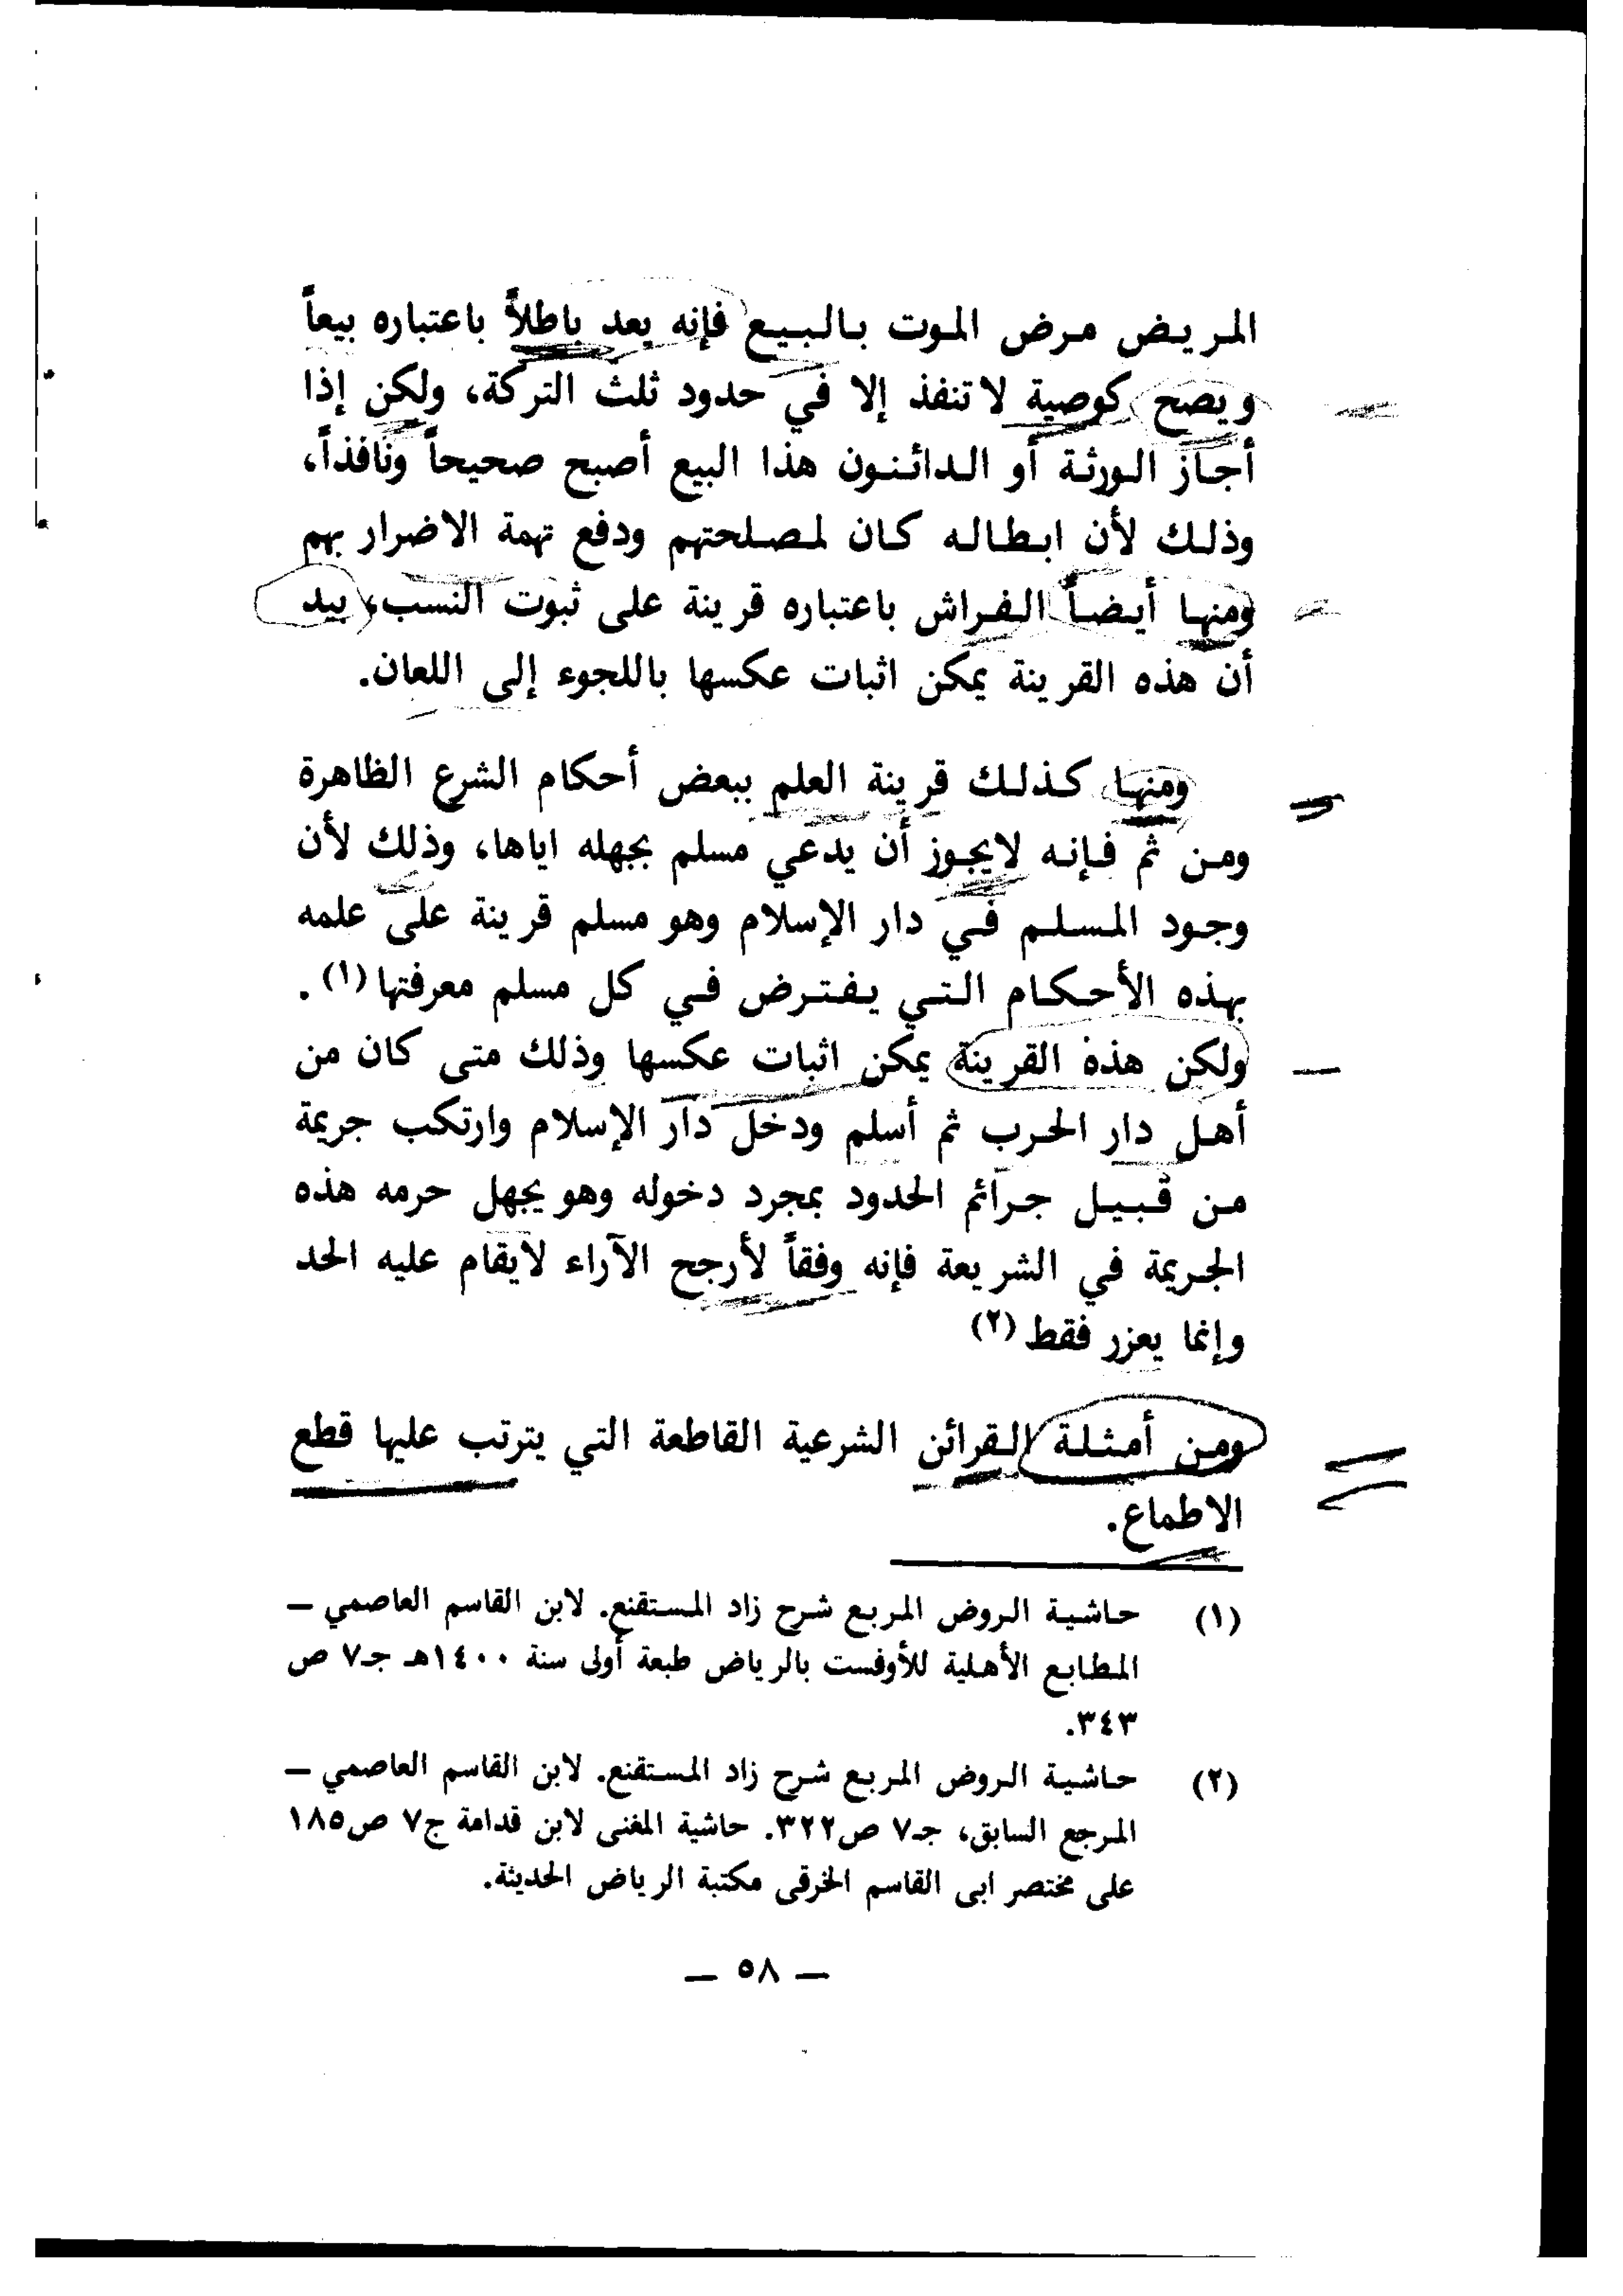 المريض مرض الموت بالبيع فإنه يعد باطلاً باعتباره بيعاً
ويصح كوصية لا تنفذ إلا في حدود ثلث التركة، ولكن إذا
أجاز الورثة أو الدائنون هذا البيع أصبح صحيحاً ونافذاً،
وذلك لأن ابطاله كان لمصلحتهم ودفع تهمة الاضرار بهم
ومنها أيضاً الفراش باعتباره قرينة على ثبوت النسب، بيد
أن هذه القرينة يمكن اثبات عكسها باللجوء إلى اللعان.
ومنها كذلك قرينة العلم ببعض أحكام الشرع الظاهرة
ومن ثم فإنه لايجوز أن يدعي مسلم بجهله اياها، وذلك لأن
وجود المسلم في دار الإسلام وهو مسلم قرينة على علمه
بهذه الأحكام التي يفترض في كل مسلم معرفتها (١).
ولكن هذه القرينة يمكن اثبات عكسها وذلك متى كان من
أهل دار الحرب ثم أسلم ودخل دار الإسلام وارتكب جريمة
من قبيل جرائم الحدود بمجرد دخوله وهو يجهل حرمه هذه
الجريمة في الشريعة فإنه وفقاً لأرجح الآراء لايقام عليه الحد
وإنما يعزر فقط (٢)
ومن أمثلة القرائن الشرعية القاطعة التي يترتب عليها قطع
الاطماع.
(١) حاشية الروض المربع شرح زاد المستقنع. لابن القاسم العاصمي —
المطابع الأهلية للأوفست بالرياض طبعة أولى سنة ١٤٠٠هـ جـ٧ ص
٣٤٣.
(٢) حاشية الروض المربع شرح زاد المستقنع. لابن القاسم العاصمي —
المرجع السابق، جـ٧ ص٣٢٢. حاشية المغنى لابن قدامة ج٧ ص١٨٥
على مختصر ابى القاسم الخرقى مكتبة الرياض الحديثة.
— ٥٨ —